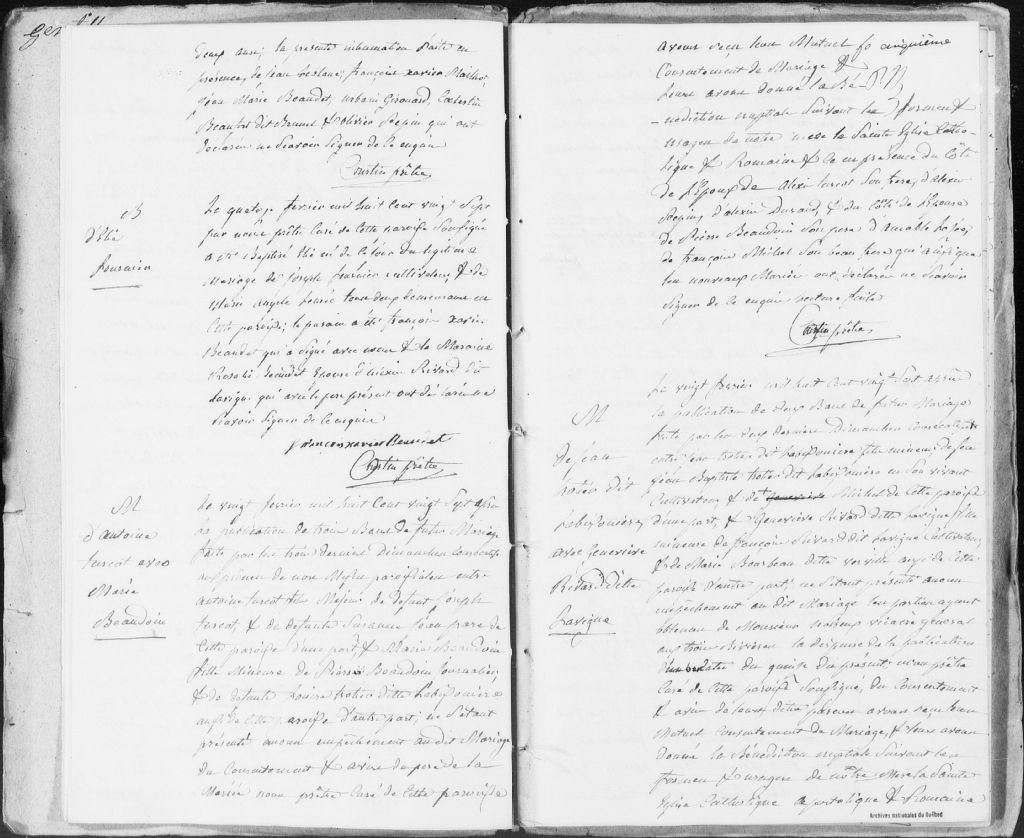 Gentilly
deux ans; la presente inhumation faite en
presence, de jean françoise xavier Mailhot
jean Marie Beaudet, urbain Girouard, Celestin
Beaufort dit Brunel & olivier Pepin qui ont
declaré ne Scavoir Signer de ce enquis
Courtin prêtre
B
d'Elie
fournier
Le quatorze fevrier mil huit Cent vingt Sept
par nous prêtre Curé de Cette paroisse Soussigné
a été baptisé Elie né de le jour du legitime
Mariage de joseph fournier Cultivateur, & de
Marie angele tous deux demeurans en
Cette paroisse; le parain a été françois xavier
Beaudet qui a Signé avec nous & la Maraine
Rosalie Beaudet Epouse d'alexis Rivard dit
Lavigne qui avec le pere présent ont déclaré ne
Scavoir Signer de ce enquis
francois xavier Beaudet
Courtin prêtre
M
d'antoine
turcot avec
Marie
Beaudoin
Le vingt fevrier mil huit Cent vingt Sept après
la publication de trois Bans de futur Mariage
faite par les trois derniers Dimanches Consecutifs
aux prones de nos Messes paroissiales entre
antoine turcot fils Majeur de defunt joseph
turcot, & de defunte Susanne jean pare de
Cette paroisse d'une part, & Marie Beaudoin
fille Mineure de Pierre Beaudoin journalier
& de defunte Louise trotier ditte Labissonière
aussi de Cette paroisse d'autre part; ne S'étant
présenté aucun empêchement au dit Mariage
du Consentement & avis du pere de la
Mariée nous prêtre Curé de Cette paroisse
avons recu leur Mutuel
Consentement de Mariage &
leurs avons donné la Bé-
-nediction nuptiale Suivant les formes &
usages de notre mere la Sainte Eglise Catho-
lique & Romaine & ce en presence du Côté
de L'Epoux de alexis turcot Son frere, d'alexis
Pepin, d'alexis Durand, & du Côté de L'Epouse
de Pierre Beaudoin Son pere d'amable
de françois Michel Son beau frere qui ainsi que
les nouveaux Mariés ont déclaré ne Savoir
Signer de ce enquis lecture faite
Courtin prêtre
M
De jean
trotier dit
Labissonière
avec Genevieve
Rivard ditte
Lavigne
Le vingt fevrier mil huit Cent vingt Sept après
la publication de deux Bans de futur Mariage
faite par les deux derniers Dimanches Consecutifs
entre jean trotier dit Labissonière fils mineur de feu
jean Baptiste trotier dit Labissonière en Son vivant
Cultivateur, & de Michel de Cette paroisse
d'une part, & Genevieve Rivard ditte Lavigne fille
mineure de françois Rivard dit Lavigne Cultivateur,
& de Marie Bourbeau ditte verville aussi de Cette
paroisse d'autre part; ne S'étant présenté aucun
empêchement au dit Mariage les parties ayant
obtenu de Monsieur noiseux vicaire général
aux trois Rivières la dispense de la publication
du quinze du présent; nous prêtre
Curé de Cette paroisse Soussigné, du Consentement
& avis de leurs parens avons recu leur
Mutuel Consentement de Mariage, & leurs avons
donné la Bénédiction nuptiale Suivant les
formes & usages de nôtre Mere la Sainte
Eglise Catholique apostolique & Romaine
Archives nationales du Québec